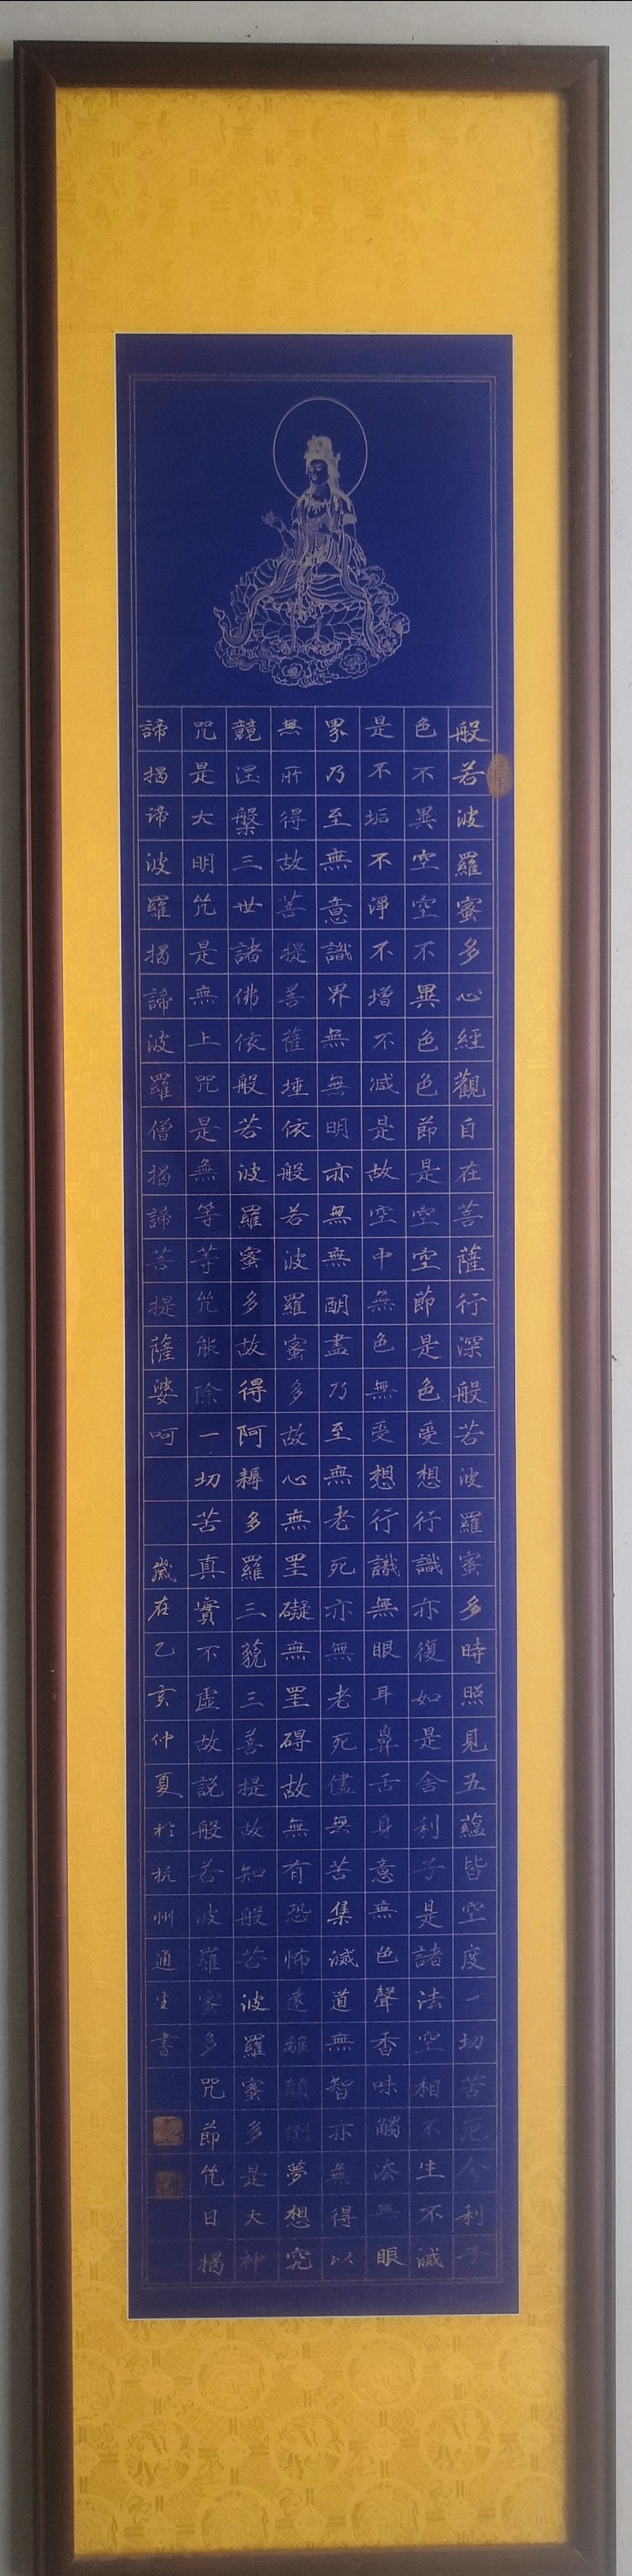 般若波羅蜜多心經觀自在菩薩行深般若波羅蜜多時照見五蘊皆空度一切苦厄舍利子
色不異空空不異色色節是空空節是色受想行識亦復如是舍利子是諸法空相不生不滅
是不垢不淨不增不減是故空中無色無受想行識無眼耳鼻舌身意無色聲香味觸法無眼
界乃至無意識界無無明亦無無明盡乃至無老死亦無老死儘無苦集滅道無智亦無得以
無所得故菩提菩薩埵依般若波羅蜜多故心無罣礙無罣碍故無有恐怖遠離顛倒夢想究
竸涅槃三世諸佛依般若波羅蜜多故得阿耨多羅三藐三菩提故知般若波羅蜜多是大神
咒是大明咒是無上咒是無等等咒能除一切苦真實不虛故説般若波羅蜜多咒節咒日揭
諦揭諦波羅揭諦波羅僧揭諦菩提薩婆呵
歲在乙亥仲夏於杭州通生書